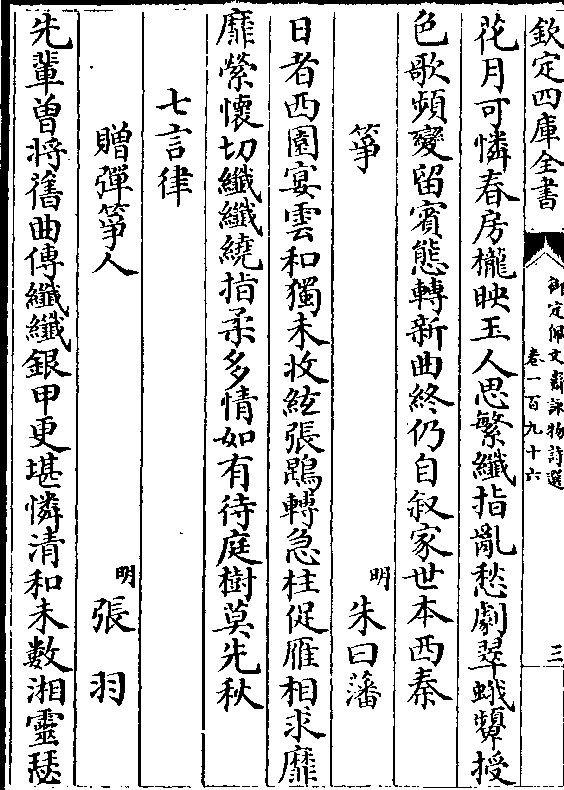 欽定四庫全書
御定佩文齋詠物詩選
卷一百九十六
三
花月可憐春房櫳映玉人思繁纖指亂愁劇翠蛾顰授
色歌頻變留賓態轉新曲終仍自叙家世本西秦
箏
明
朱曰藩
日者西園宴雲和獨未收絃張鵾轉急柱促雁相求靡
靡縈懷切纖纖繞指柔多情如有待庭樹莫先秋
七言律
贈彈箏人
明
張羽
先輩曾將舊曲傳纖纖銀甲更堪憐清和未數湘靈瑟